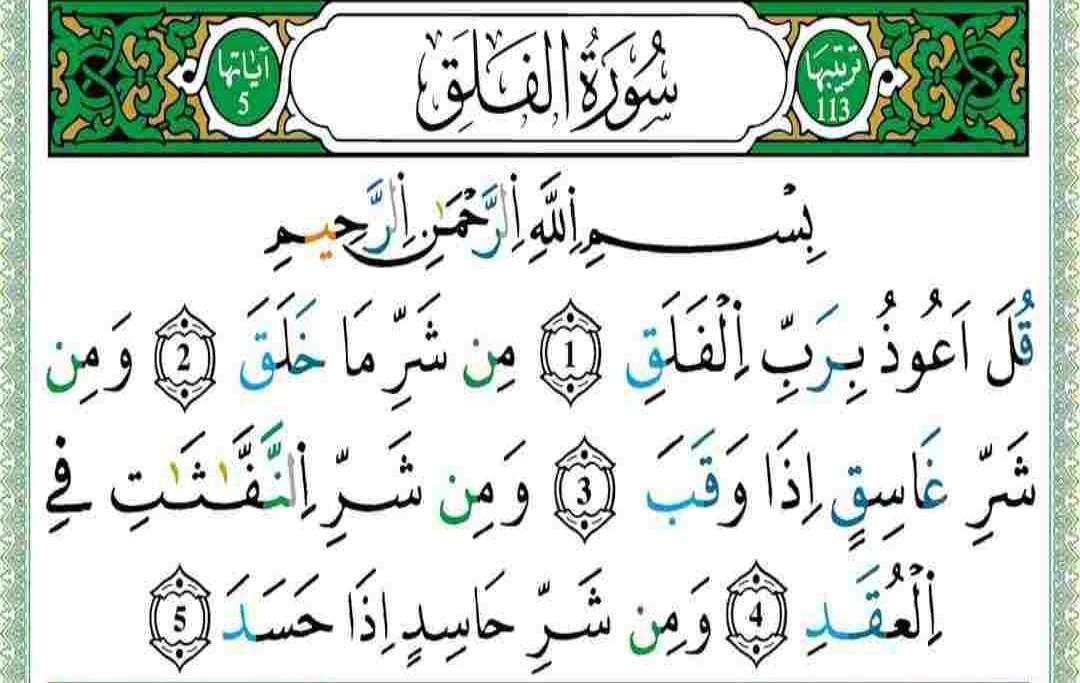 ترتيبها سُورَةُ الفَلَقِ آياتها
113 5
بِسْمِ اِ۬للَّهِ اِ۬لرَّحْمَٰنِ اِ۬لرَّحِيمِ
قُلَ اَعُوذُ بِرَبِّ اِ۬لْفَلَقِ 1 مِن شَرِّ مَا خَلَقَ 2 وَمِن
شَرِّ غَاسِقٍ اِذَا وَقَبَ 3 وَمِن شَرِّ اِ۬لنَّفَّٰثَٰتِ فِے
اِ۬لْعُقَدِ 4 وَمِن شَرِّ حَاسِدٍ اِذَا حَسَدَ 5